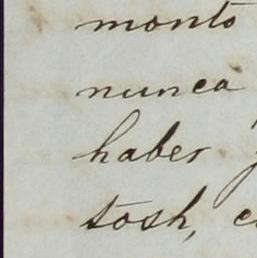 monto
nunca
haber
tosh,